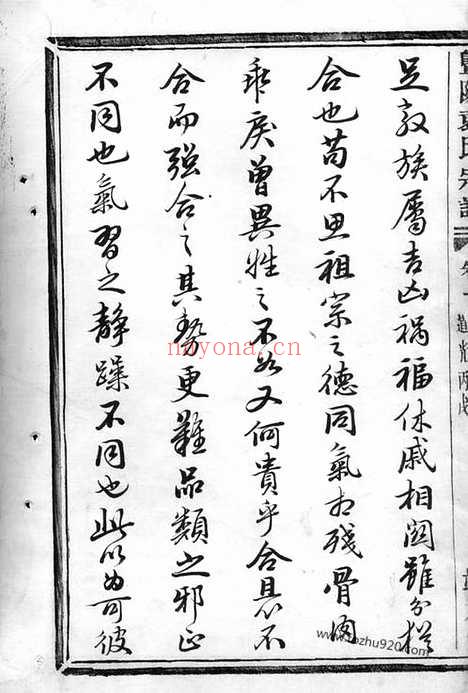 暨陽袁氏宗譜 卷一
足敦族屬吉凶禍福休戚相関雖分猶
合也苟不思祖宗之德同氣相殘骨肉
乖戾曾異姓之不如又何貴乎合且不
合而强合之其勢更難品類之邪正
不同也氣習之静躁不同也此以為可彼
nayona.cn
www.fozhu920.com